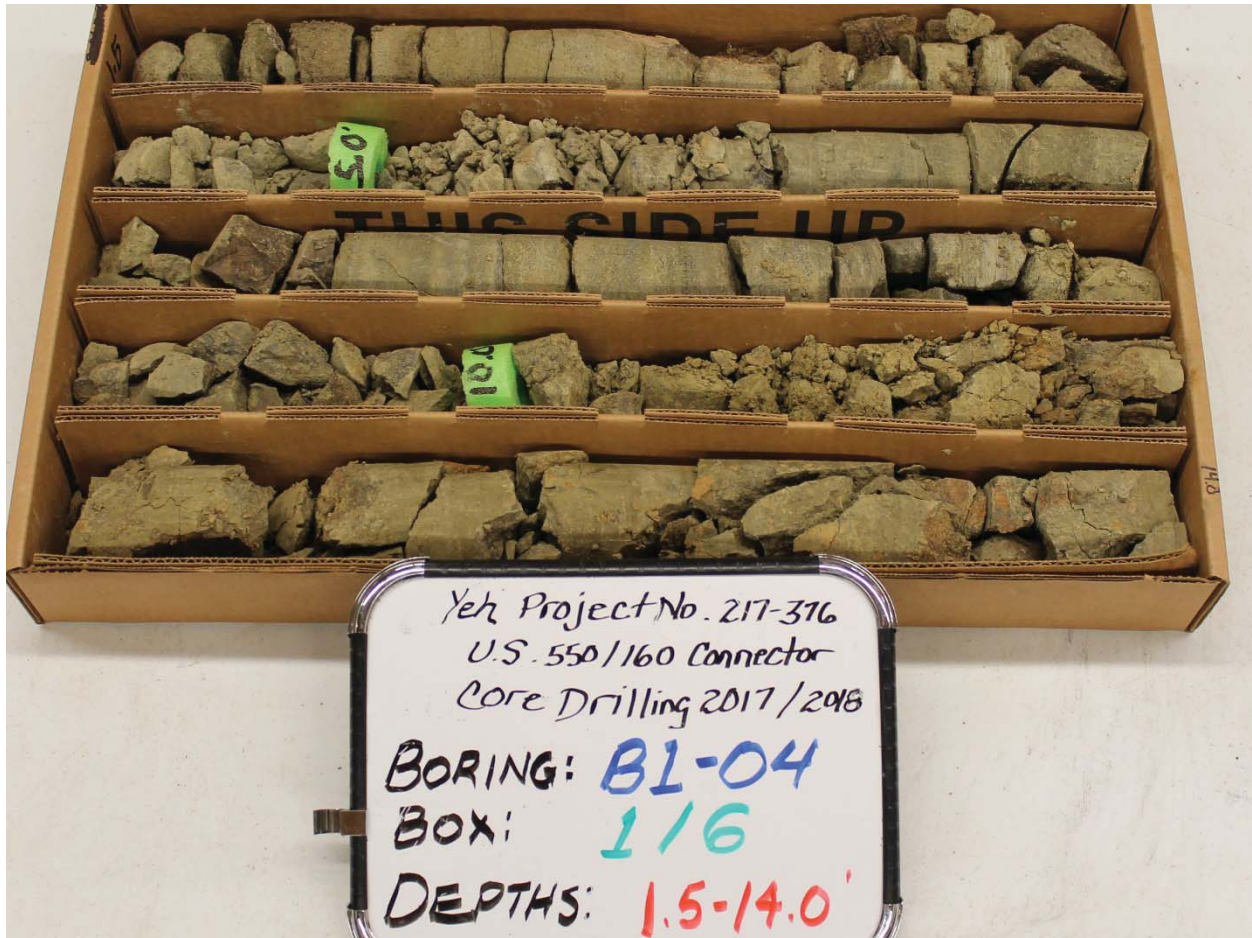 1.5
5.0'
THIS SIDE UP
10.0'
14.0
Yeh Project No. 217-376
U.S. 550/160 Connector
Core Drilling 2017/2018
BORING: B1-04
BOX: 1/6
DEPTHS: 1.5-14.0'